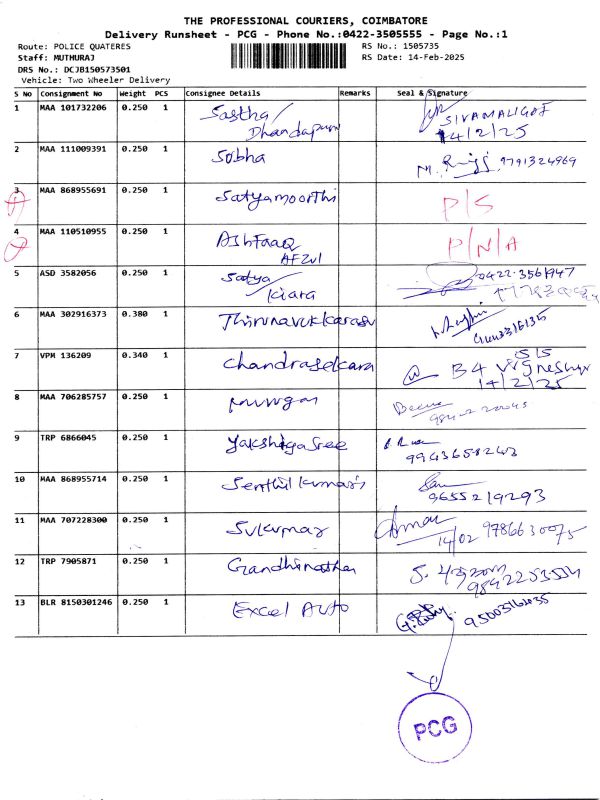 THE PROFESSIONAL COURIERS, COIMBATORE
Delivery Runsheet - PCG - Phone No.:0422-3505555 - Page No.:1
Route: POLICE QUATERES RS No.: 1505735
Staff: MUTHURAJ RS Date: 14-Feb-2025
DRS No.: DCJB150573501
Vehicle: Two Wheeler Delivery
S No Consignment No Weight PCS Consignee Details Remarks Seal & Signature
1 MAA 101732206 0.250 1 Sastha/
Dhandapani
14/2/25
2 MAA 111009391 0.250 1 Sobha 9791324969
3 MAA 868955691 0.250 1 Satyamoorthi P/S
4 MAA 110510955 0.250 1 AShfaaq P/N/A
AFZUl
5 ASD 3582056 0.250 1 Satya/ 0422-3561947
Kiara
6 MAA 302916373 0.380 1 Thirunavukkarasu
7 VPM 136209 0.340 1 Chandrasekara B4 Vigneshwar
14/2/25
8 MAA 706285757 0.250 1 Murugan
9 TRP 6866045 0.250 1 Yakshigasree
9943658243
10 MAA 868955714 0.250 1 Senthil Kumar
9655219293
11 MAA 707228300 0.250 1 Sukumar 14/02 9786630075
12 TRP 7905871 0.250 1 Gandhinathan
13 BLR 8150301246 0.250 1 Excel Auto
PCG